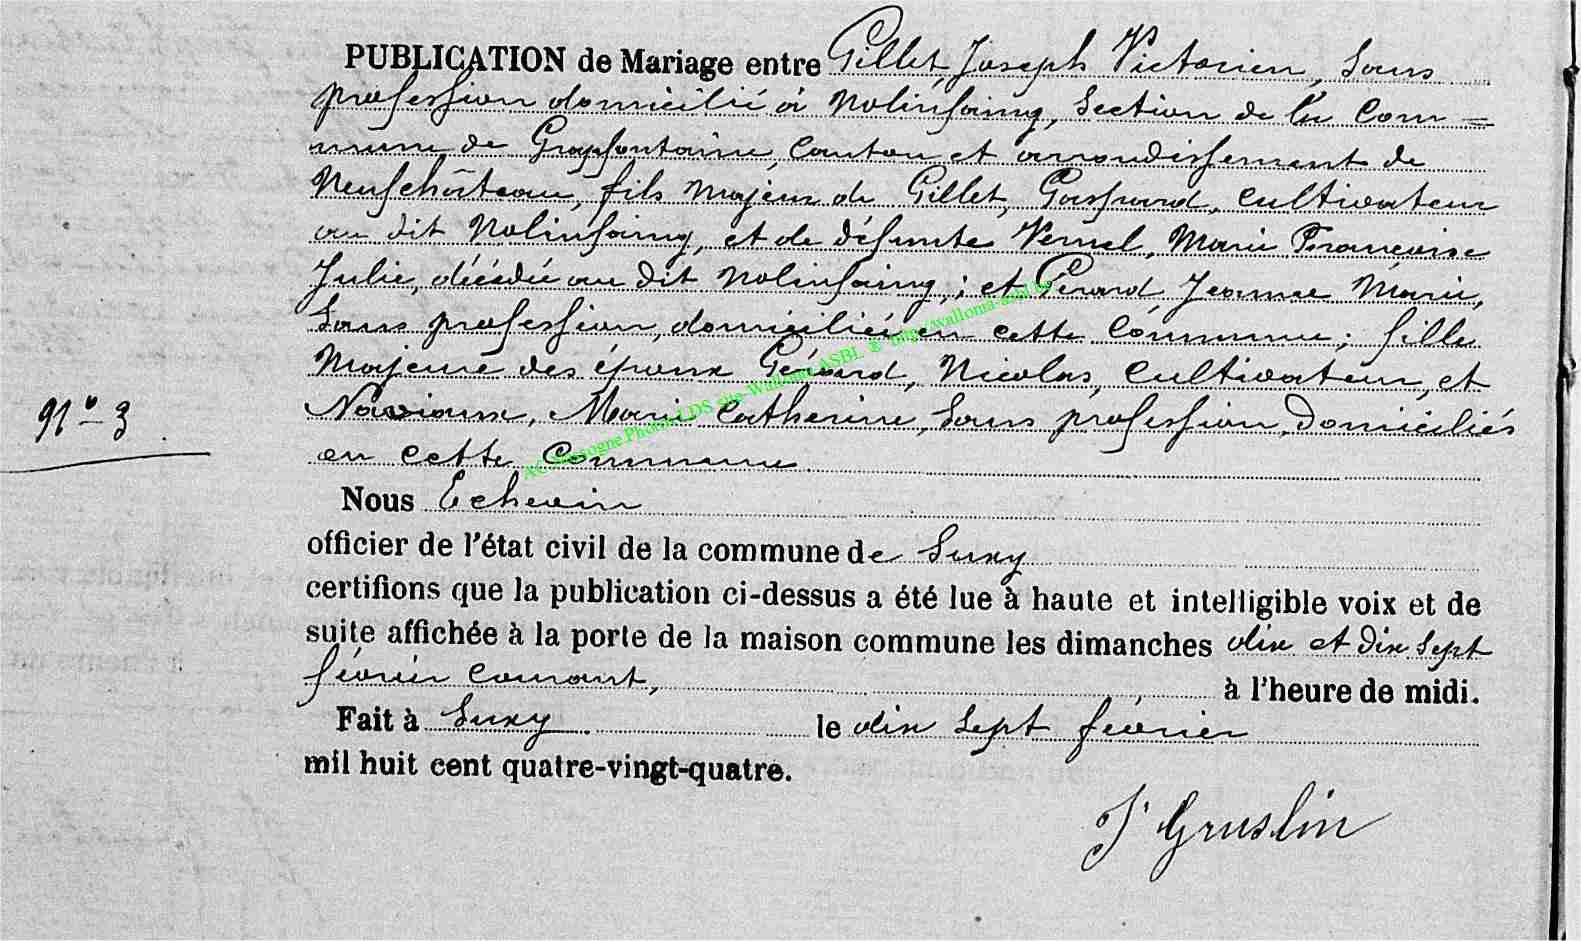 PUBLICATION de Mariage entre Gillet, Joseph Victorien, Sans
profession domicilié à Nolinfaing, Section de la Com=
mune de Grapfontaine, Canton et arrondissement de
Neufchâteau, fils Majeur de Gillet, Gaspard, Cultivateur
au dit Nolinfaing, et de défunte Vernel, Marie Françoise
Julie, décédée au dit Nolinfaing; et Gérard, Jeanne Marie,
Sans profession, domiciliée en cette Commune; fille
Majeure des époux Gérard, Nicolas, Cultivateur, et
Marie Catherine, Sans profession, Domiciliés
en cette Commune
N° 3
Nous Echevin
officier de l'état civil de la commune de Suxy
certifions que la publication ci-dessus a été lue à haute et intelligible voix et de
suite affichée à la porte de la maison commune les dimanches dix et dix sept
février courant, à l'heure de midi.
Fait à Suxy le dix sept février
mil huit cent quatre-vingt-quatre.
J Gruslin
Photos LDS site Wallonia ASBL @ http://wallonia-asbl.be